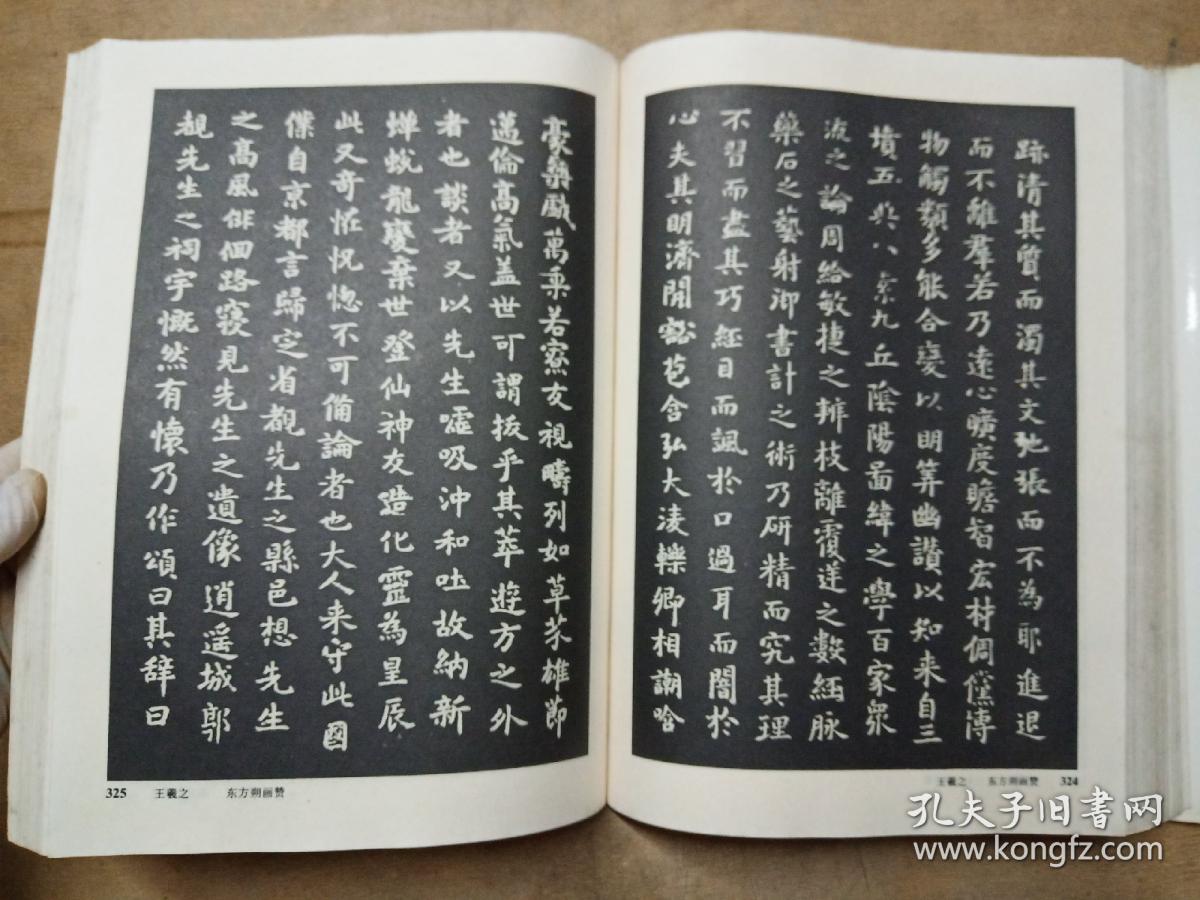 跡清其質而濁其文弛張而不為耶進退
而不離羣若乃遠心曠度贍智宏材倜儻博
物觸類多能合變以明筭幽讚以知来自三
墳五典八索九丘陰陽啚緯之學百家衆
流之論周給敏捷之辨枝離覆逆之數經脉
藥石之藝射御書計之術乃研精而究其理
不習而盡其巧經目而諷於口過耳而闇於
心夫其明濟開豁苞含弘大淩轢卿相謿哈
豪桀戲萬乗若寮友視疇列如草芥雄節
邁倫高氣盖世可謂拔乎其萃遊方之外
者也談者又以先生噓吸沖和吐故納新
蟬蛻龍變棄世登仙神友造化靈為星辰
此又奇恠怳惚不可備論者也大人来守此國
僕自京都言歸定省覩先生之縣邑想先生
之高風俳佪路寑見先生之遺像逍遥城郭
覩先生之祠宇慨然有懷乃作頌曰其辞曰
325 王羲之 东方朔画赞
王羲之 东方朔画赞 324
孔夫子旧书网
www.kongfz.com